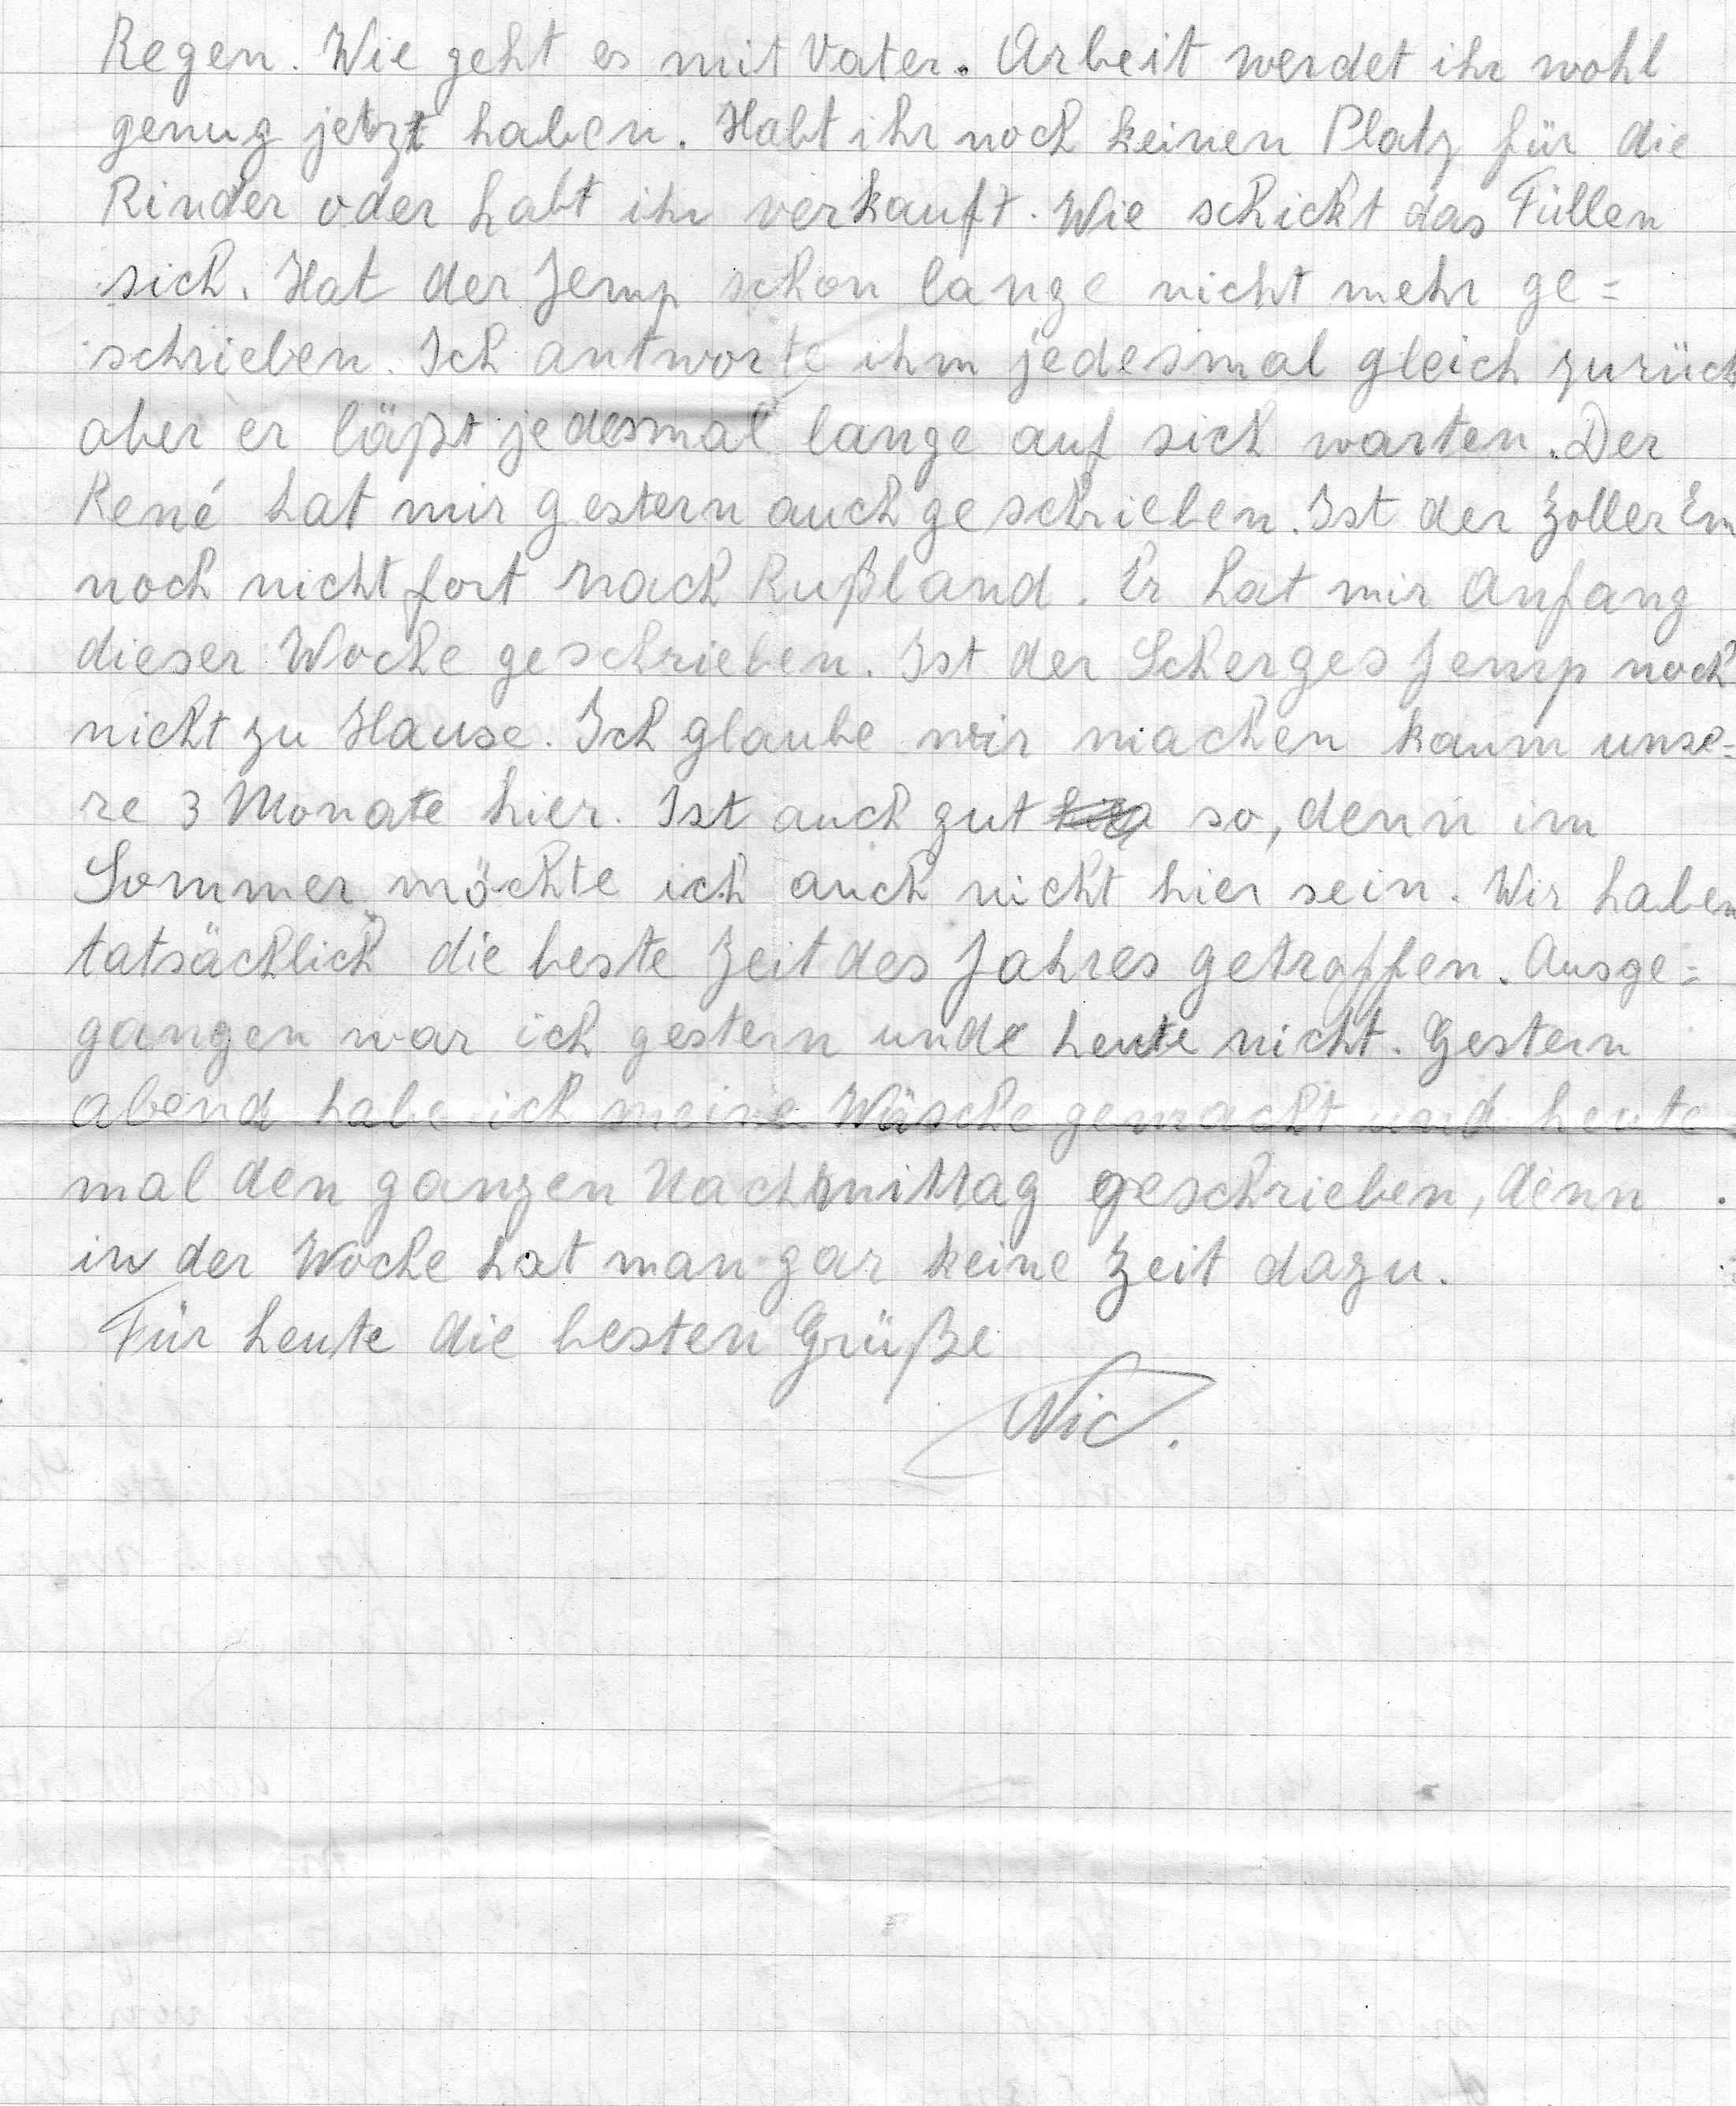 Regen. Wie geht es mit Vater. Arbeit werdet ihr wohl
genug jetzt haben. Habt ihr noch keinen Platz für die
Rinder oder habt ihr verkauft. Wie schickt das Füllen
sich. Hat der Jemp schon lange nicht mehr ge=
schrieben. Ich antworte ihm jedesmal gleich zurück
aber er läßt jedesmal lange auf sich warten. Der
René hat mir gestern auch geschrieben. Ist der Zoller Em
noch nicht fort nach Rußland. Er hat mir Anfang
dieser Woche geschrieben. Ist der Scherges Jemp noch
nicht zu Hause. Ich glaube wir machen kaum unse=
re 3 Monate hier. Ist auch gut so, denn im
Sommer möchte ich auch nicht hier sein. Wir haben
tatsächlich die beste Zeit des Jahres getroffen. Ausge=
gangen war ich gestern und heute nicht. Gestern
abend habe ich meine Wäsche gemacht und heute
mal den ganzen Nachmittag geschrieben, denn
in der Woche hat man gar keine Zeit dazu.
Für heute die besten Grüße
Nic.